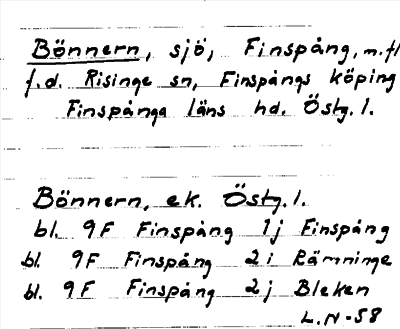 Bönnern, sjö, Finspång, m.fl
f.d. Risinge sn, Finspångs köping
Finspånga läns hd. Östg. l.
Bönnern, ek. Östg. l.
bl. 9F Finspång 1j Finspång
bl. 9F Finspång 2i Rämninge
bl. 9F Finspång 2j Bleken
L.N-58